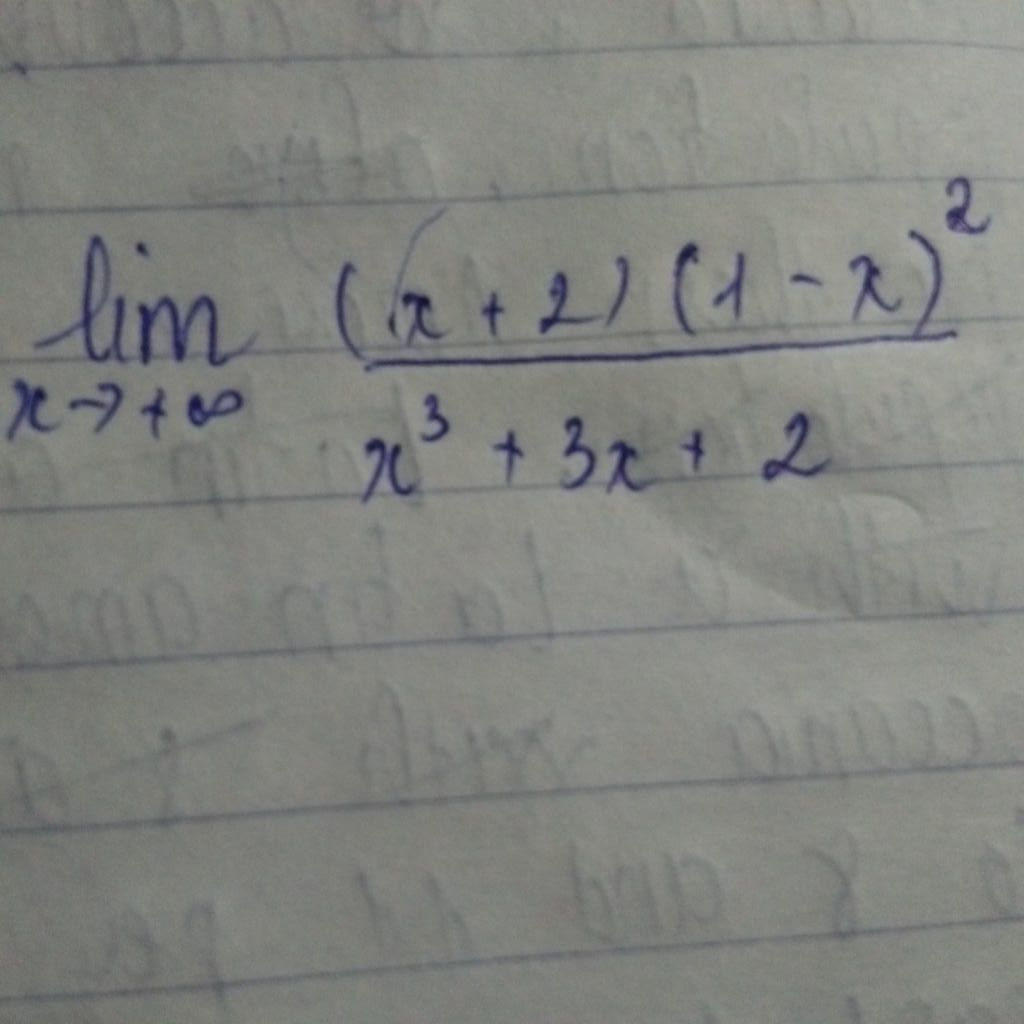 lim (x + 2) (1 - x)²
x→+∞ x³ + 3x + 2